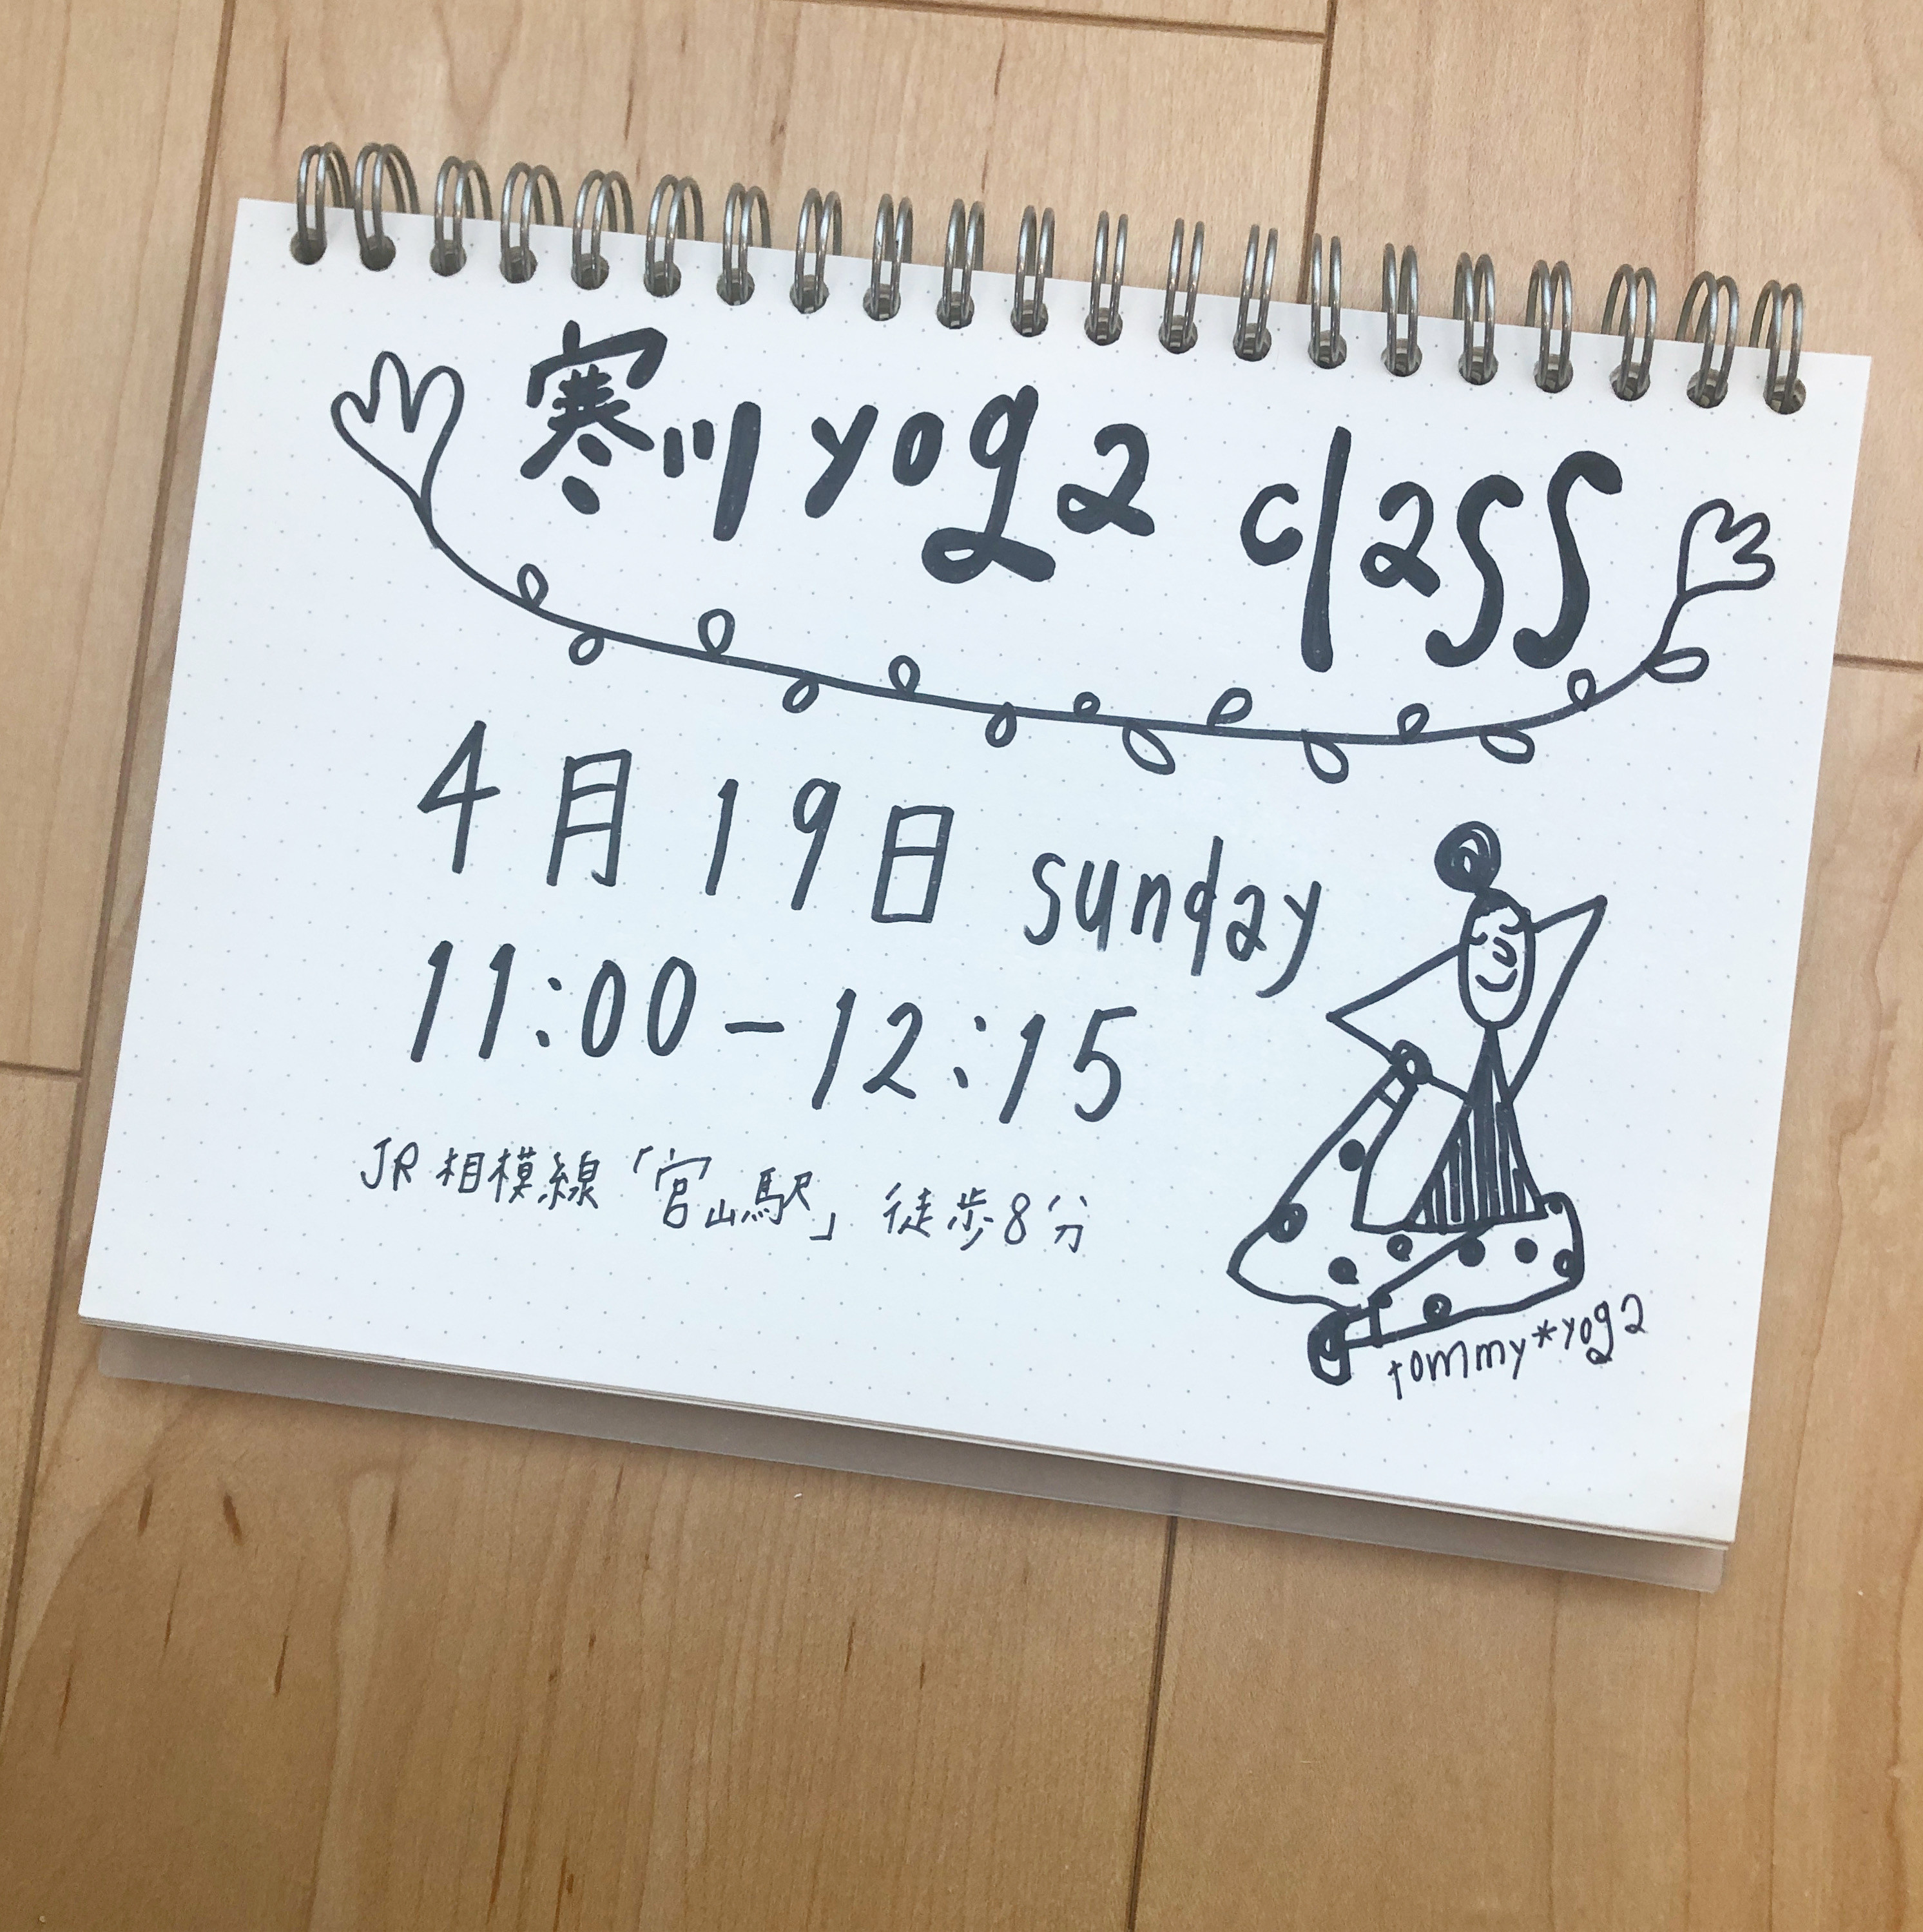 寒川 yoga class
4月19日 sunday
11:00-12:15
JR相模線「宮山駅」徒歩8分
tommy*yoga